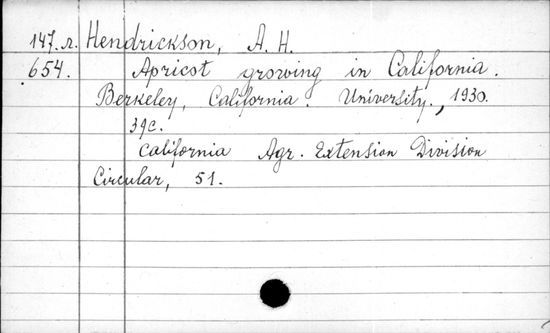 147.л. Hendrickson, A. H.
654. Apricot growing in California.
Berkeley, California. University., 1930.
39c.
California Agr. Extension Division
Circular, 51.